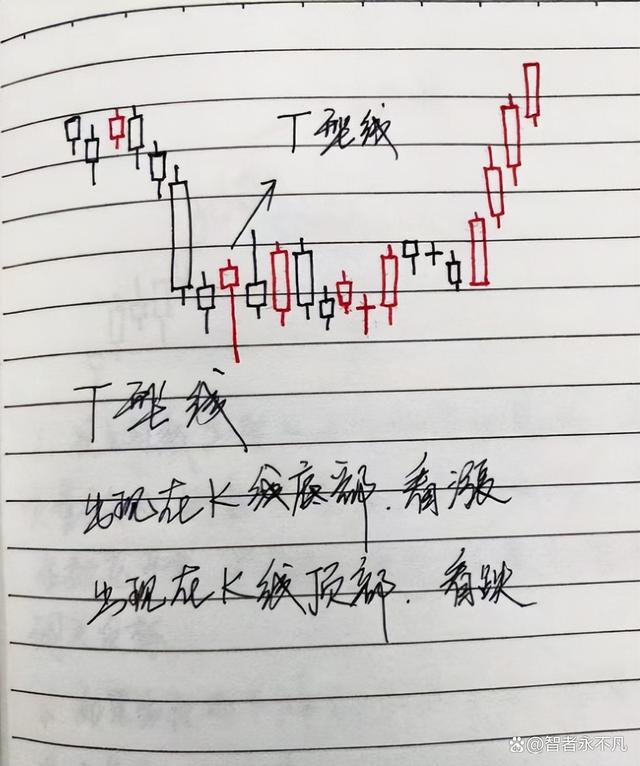 T型线
T型线
出现在K线底部.看漲
出现在K线顶部.看跌
@智者永不凡